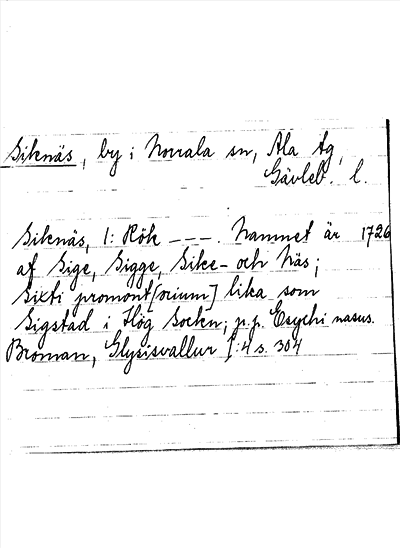 Siknäs, by i Norrala sn, Ala tg,
Gävleb. l.
Siknäs, 1: Rök ---. Namnet är 1726
af Sige, Sigge, Sike- och Näs;
Sixti promont[orium] lika som
Sigstad i Hög Sockn; p.p. Esychi nasus.
Broman, Glysisvallur I:4 s. 304